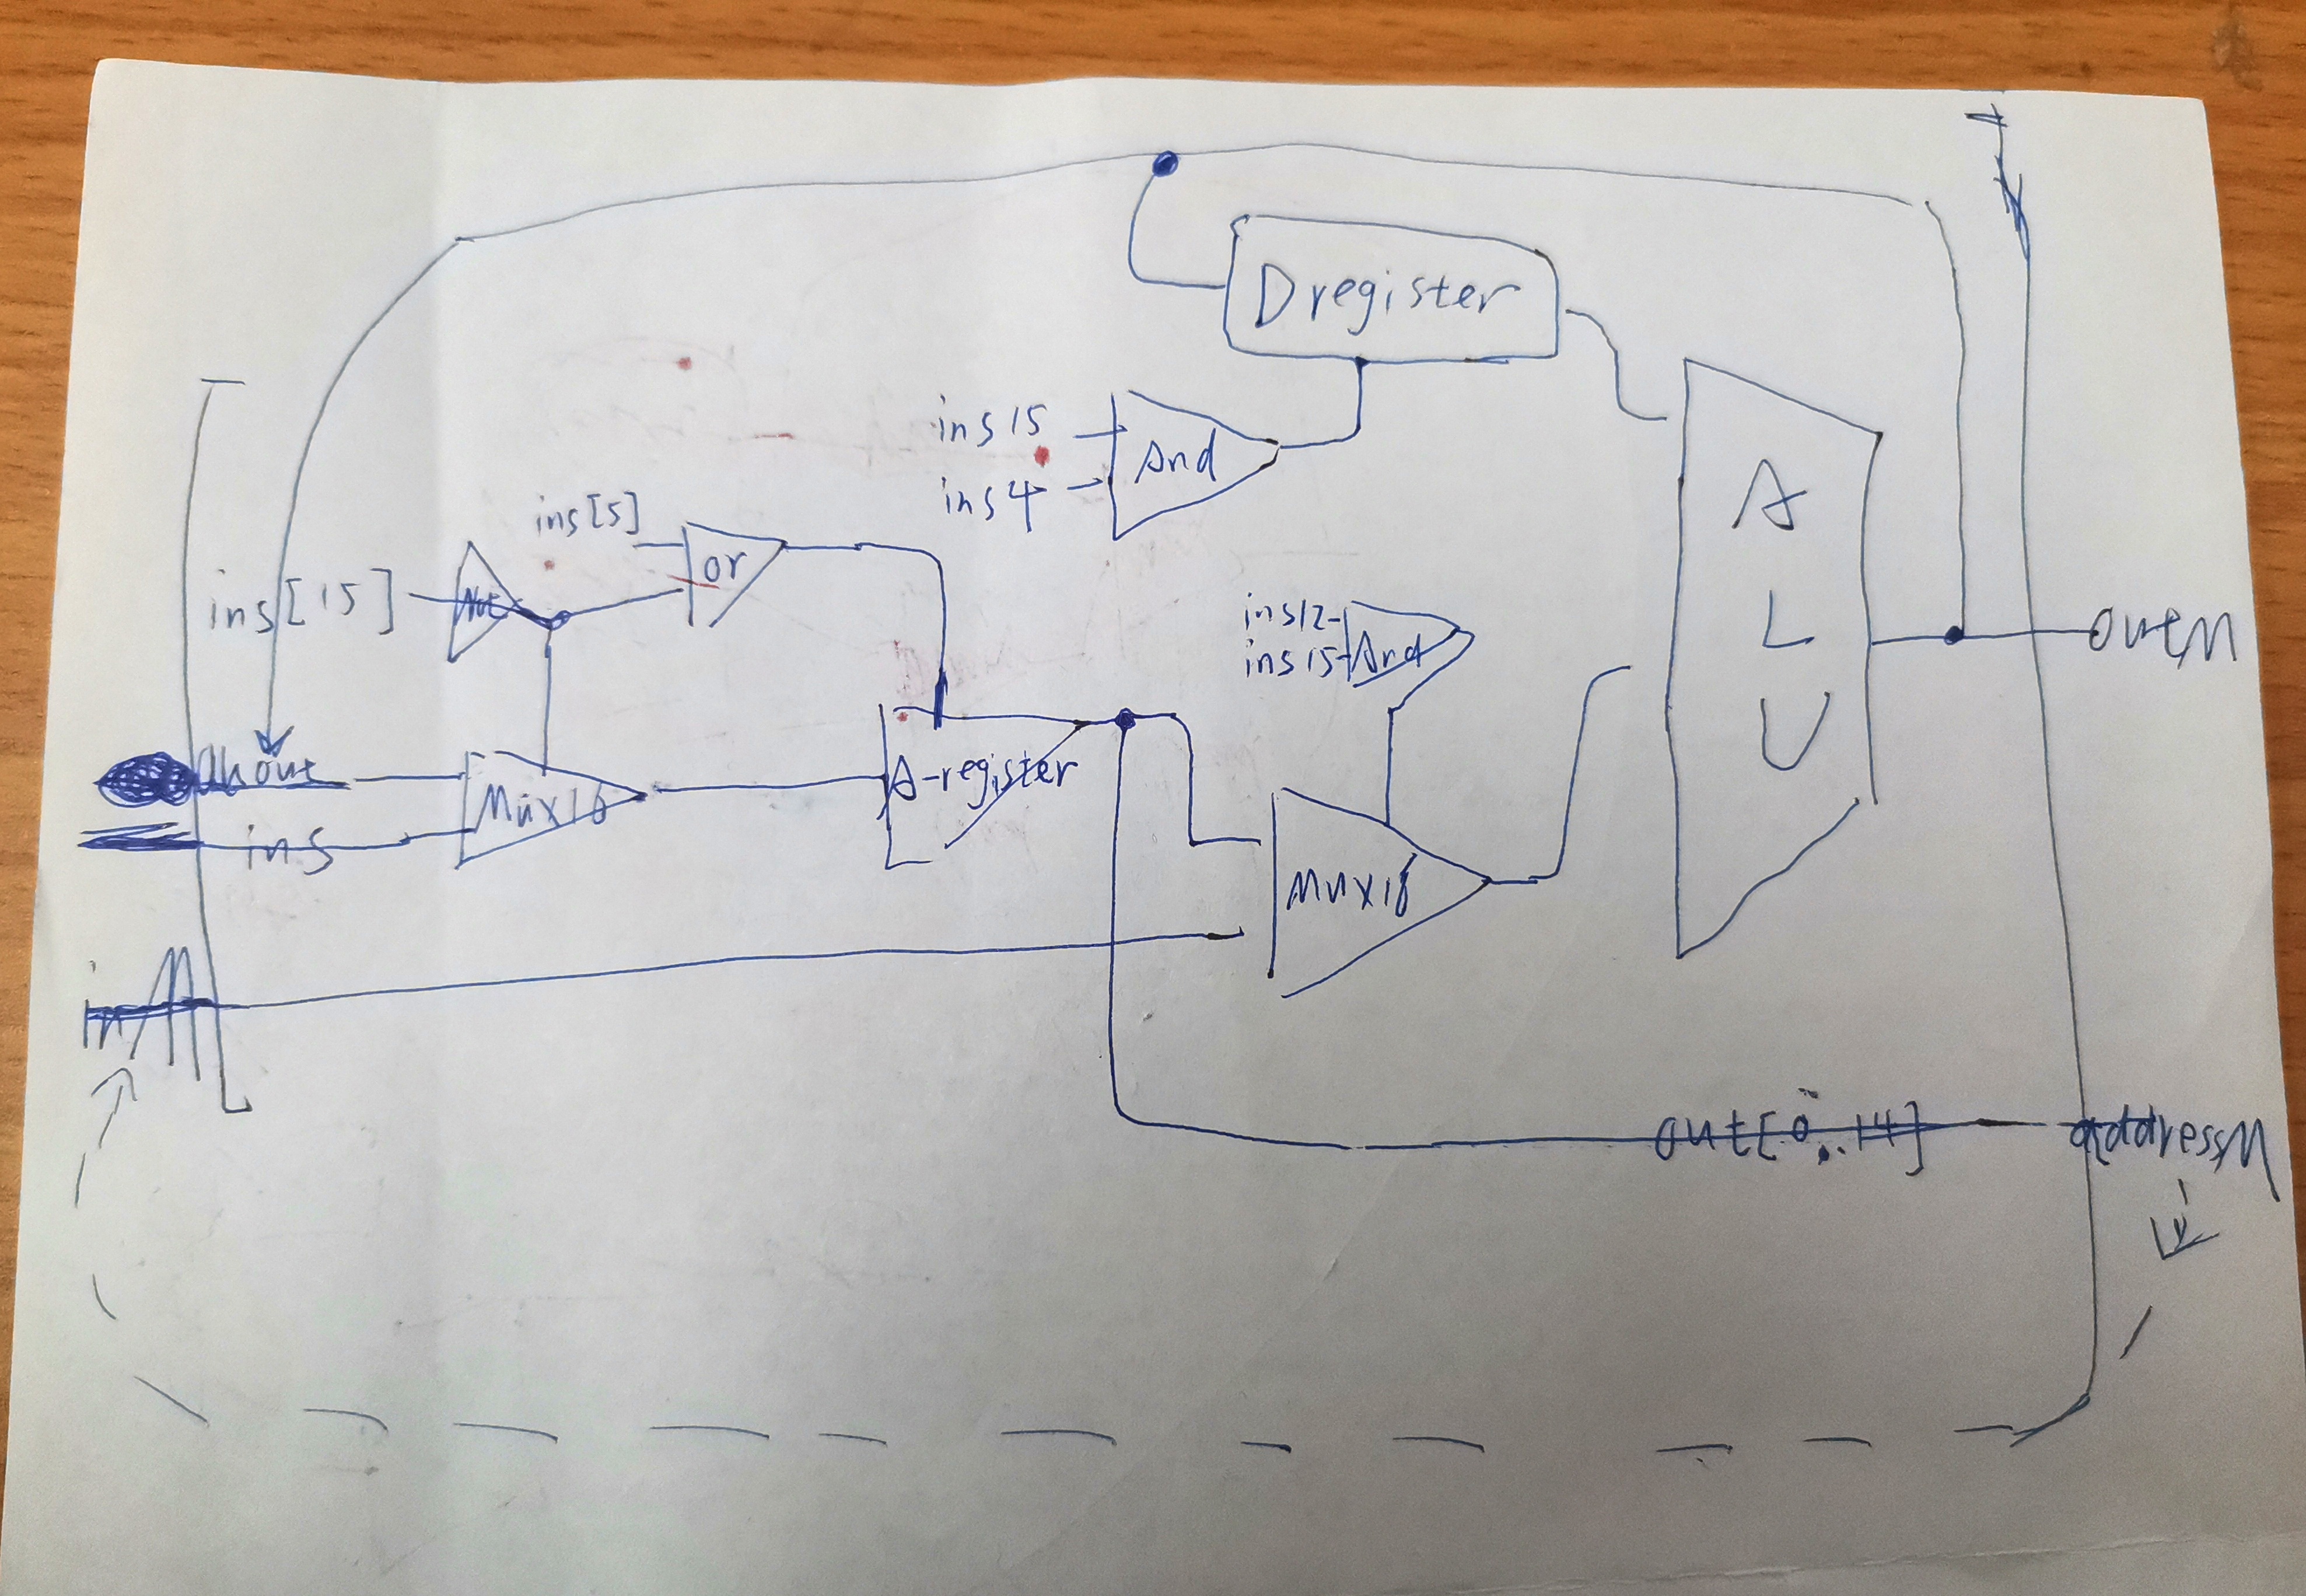 Dregister
ins 15
And
ins 4
ins[5]
or
ins[15]
Not
ins12
ins15
And
A
L
U
outM
ins
Mux16
A-register
Mux16
inM
out[0..14]
addressM